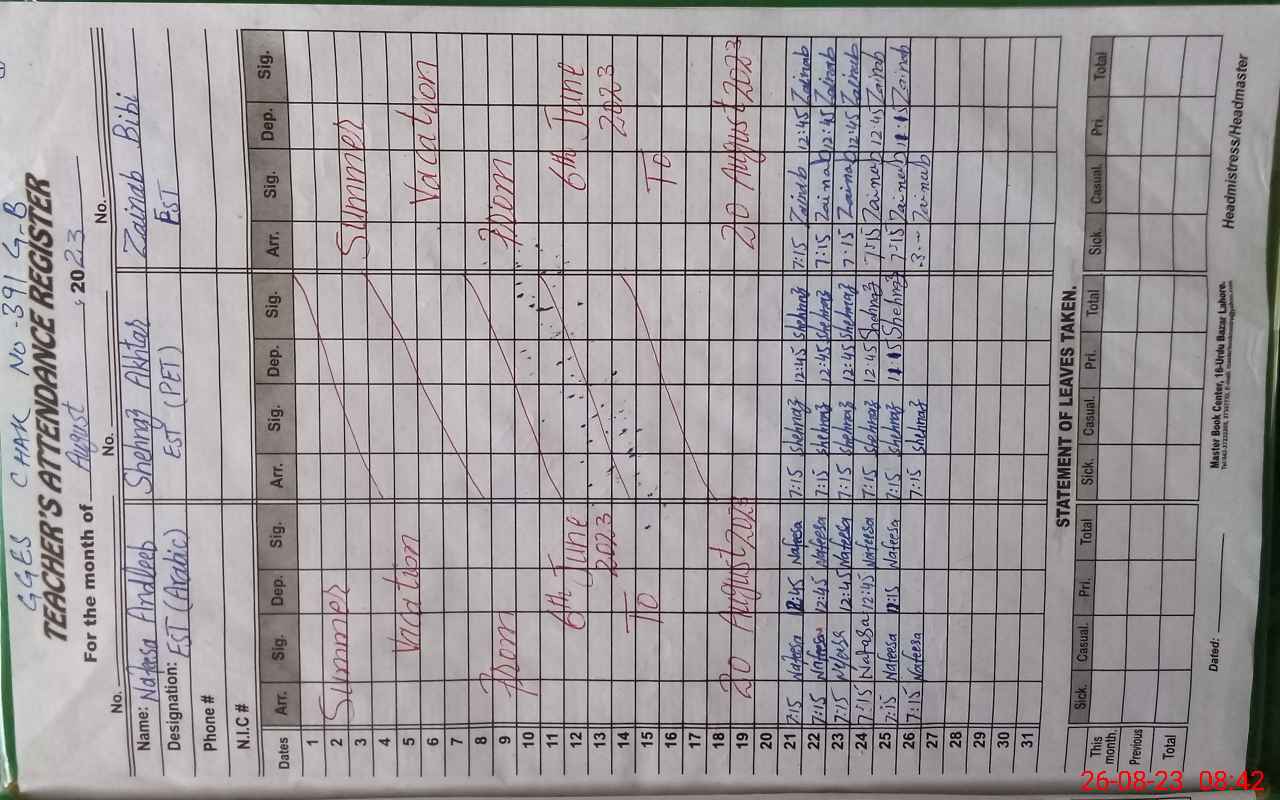 GGES CHAK NO-391 G.B
TEACHER'S ATTENDANCE REGISTER
For the month of August, 2023
No. No. No.
Name: Nafeesa Andaleeb Shehnaz Akhtar Zainab Bibi
Designation: EST (Arabic) EST (PET) EST
Phone #
N.I.C #
Dates Arr. Sig. Dep. Sig. Arr. Sig. Dep. Sig. Arr. Sig. Dep. Sig.
1
2 Summer Summer
3
4
5 Vacation Vacation
6
7
8
9 From From
10
11
12 6th June 6th June
13 2023 2023
14
15 To To
16
17
18
19 20 August 2023 20 August 2023
20
21 7:15 Nafeesa 12:45 Nafeesa 7:15 Shehnaz 12:45 Shehnaz 7:15 Zainab 12:45 Zainab
22 7:15 Nafeesa 12:45 Nafeesa 7:15 Shehnaz 12:45 Shehnaz 7:15 Zainab 12:45 Zainab
23 7:15 Nefasa 12:45 Nafeesa 7:15 Shehnaz 12:45 Shehnaz 7:15 Zainab 12:45 Zainab
24 7:15 Nafasa 12:45 Nafeesa 7:15 Shehnaz 12:45 Shehnaz 7:15 Zainab 12:45 Zainab
25 7:15 Nafeesa 11:15 Nafeesa 7:15 Shehnaz 11:15 Shehnaz 7:15 Zaineb 11:15 Zainab
26 7:15 Nafeesa 7:15 Shehnaz Zaineb
27
28
29
30
31
STATEMENT OF LEAVES TAKEN.
Sick. Casual. Pri. Total Sick. Casual. Pri. Total Sick. Casual. Pri. Total
This month.
Previous
Total
Dated: Master Book Center, 16-Urdu Bazar Lahore. Headmistress/Headmaster
26-08-23 08:42